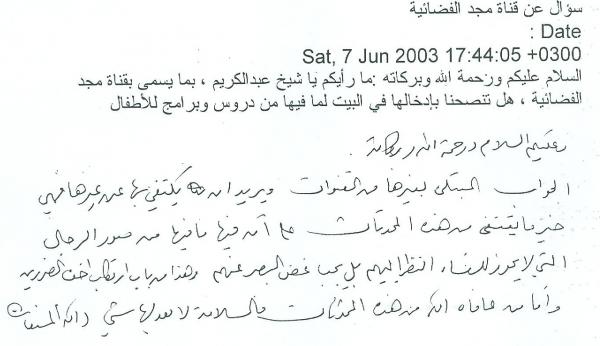 سؤال عن قناة مجد الفضائية
Date :
Sat, 7 Jun 2003 17:44:05 +0300
السلام عليكم وزحمة الله وبركاته :ما رأيكم يا شيخ عبدالكريم ، بما يسمى بقناة مجد
الفضائية ، هل تنصحنا بإدخالها في البيت لما فيها من دروس وبرامج للأطفال
وعليكم السلام ورحمة الله وبركاته .
الجواب المبتلى بغيرها من القنوات ويريد ان يكتفي بها عن غيرها فهي
خير ما يقتنى من هذه المحدثات على أن فيها ما فيها من صور الرجال
التي لا يجوز للنساء النظر إليهم بل يجب غض البصر عنهم وهذا من باب ارتكاب اخف الضررين
وأما من عافاه الله من هذه المحدثات فالسلامة لا يعدلها شيء والله المستعان